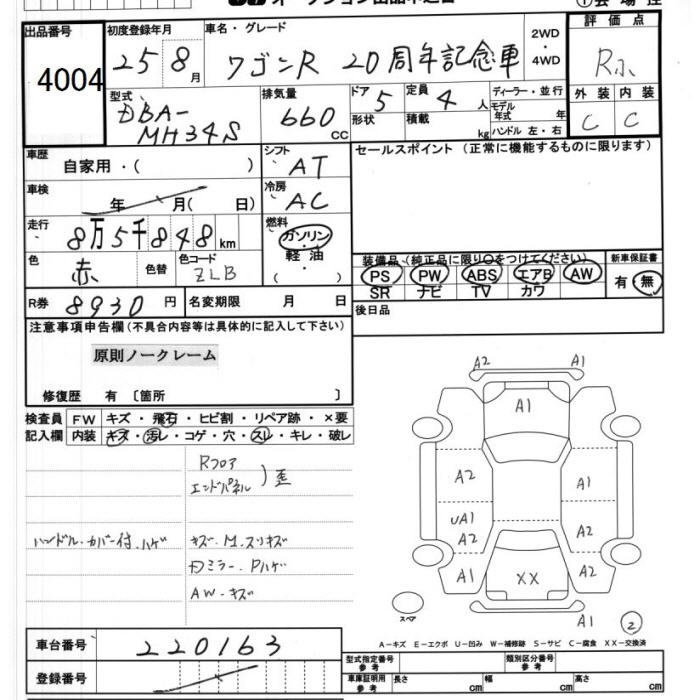 出品番号
4004
初度登録年月
25 8月
車名・グレード
ワゴンR 20周年記念車
2WD
・
4WD
評価点
Rふ
外装 内装
C C
型式
DBA-
MH34S
排気量
660
CC
ドア 5
定員 4人
形状
積載 kg
ディーラー・並行
モデル
年式 年
ハンドル 左・右
車歴
自家用・( )
シフト
AT
セールスポイント (正常に機能するものに限ります)
車検
年 月( 日)
冷房
AC
走行
8万5千848km
燃料
ガソリン
軽油
( )
色
赤
色替
色コード
ZLB
装備品 (純正品に限り○をつけてください)
PS PW ABS エアB AW
SR ナビ TV カワ
新車保証書
有・無
R券 8930円
名変期限 月 日
後日品
注意事項申告欄(不具合内容等は具体的に記入して下さい)
原則ノークレーム
修復歴 有 〔箇所 〕
検査員 FW キズ・飛石・ヒビ割・リペア跡・×要
記入欄 内装 キズ・汚レ・コゲ・穴・スレ・キレ・破レ
Rフロア
エンドパネル )歪
ハンドル・カバー付・ハゲ
キズ・M・スリキズ
ミラー・Pハゲ
AW・キズ
A2 A1
A1
A2 A1
UA1
A2 A2
A1 XX A2
A1
スペア
2
A-キズ E-エクボ U-凹み W-補修跡 S-サビ C-腐食 XX-交換済
車台番号 220163
登録番号
型式指定番号
参考
類別区分番号
参考
車庫証明用
参考
長さ cm 幅 cm 高さ cm